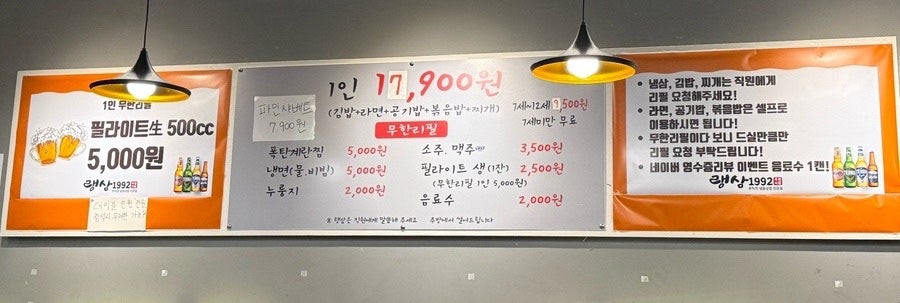 1인 무한리필
필라이트生 500cc
5,000원
랭상1992
파인샤베트
7.900원
1인 17,900원
(김밥+라면+공기밥+볶음밥+찌개)
무한리필
7세~12세 9,500원
7세미만 무료
폭탄계란찜 5,000원
냉면(물.비빔) 5,000원
누룽지 2,000원
소주. 맥주 3,500원
필라이트 생(1잔) 2,500원
(무한리필 1인 5,000원)
음료수 2,000원
※ 랭삼은 직원에게 말씀해 주세요
• 냉삼, 김밥, 찌개는 직원에게
리필 요청해주세요!
• 라면, 공기밥, 볶음밥은 셀프로
이용하시면 됩니다!
• 무한리필이다 보니 드실만큼만
리필 요청 부탁드립니다!
• 네이버 영수증리뷰 이벤트 음료수 1캔!
랭상1992